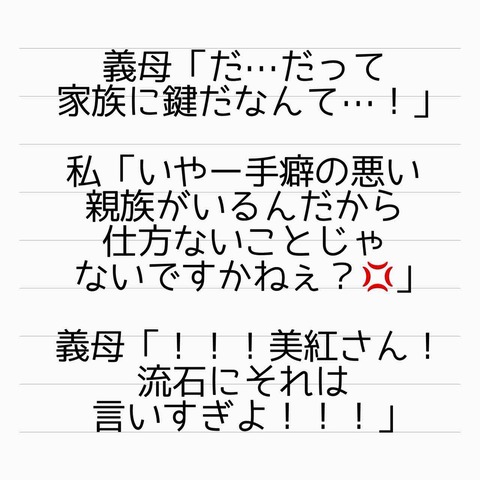 義母「だ…だって
家族に鍵だなんて…！」
私「いやー手癖の悪い
親族がいるんだから
仕方ないことじゃ
ないですかねぇ？💢」
義母「！！！美紅さん！
流石にそれは
言いすぎよ！！！」